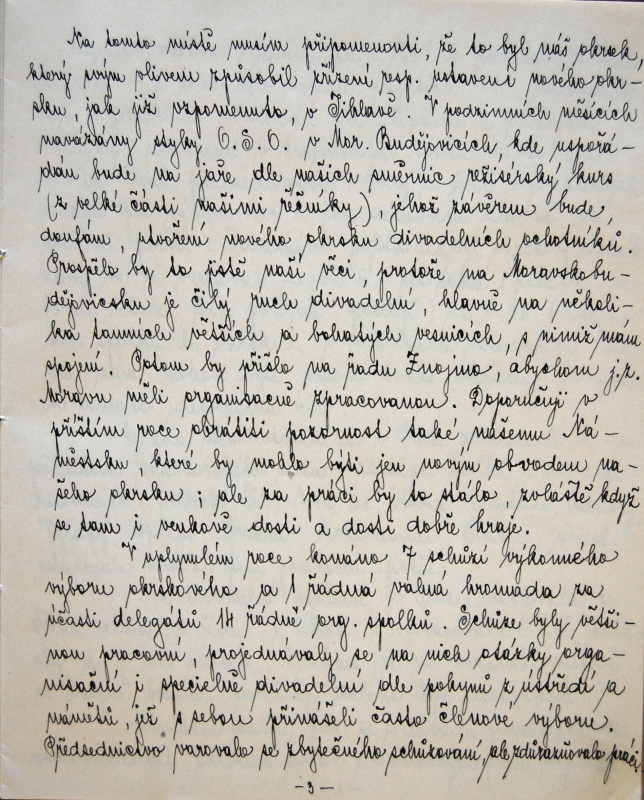 Na tomto místě musím připomenouti, že to byl náš okrsek,
který svým vlivem způsobil zřízení resp. ustavení nového okr-
sku, jak již vzpomenuto, v Jihlavě. V podzimních měsících
navázány styky O.S.O. v Mor. Budějovicích, kde uspořá-
dán bude na jaře dle našich směrnic režisérský kurs
(z velké části našimi řečníky), jehož závěrem bude,
doufám, utvoření nového okrsku divadelních ochotníků.
Prospělo by to jistě naší věci, protože na Moravskobu-
dějovicsku je čilý ruch divadelní, hlavně na několi-
ka tamních větších a bohatých vesnicích, s nimiž mám
spojení. Potom by přišlo na řadu Znojmo, abychom j.z.
Moravu měli organisačně zpracovanou. Doporučuji v
příštím roce obrátiti pozornost také našemu Ná-
městsku, které by mohlo býti jen novým obvodem na-
šeho okrsku; ale za práci by to stálo, zvláště když
se tam i venkově dosti a dosti dobře hraje.
V uplynulém roce konáno 7 schůzí výkonného
výboru okrskového a 1 řádná valná hromada za
účasti delegátů 14 řádně org. spolků. Schůze byly větši-
nou pracovní, projednávaly se na nich otázky orga-
nisační i specielně divadelní dle pokynů z ústředí a
námětů, jež s sebou přinášeli často členové výboru.
Předsednictvo varovalo se zbytečného schůzování, ale zdůrazňovalo práci
-3-